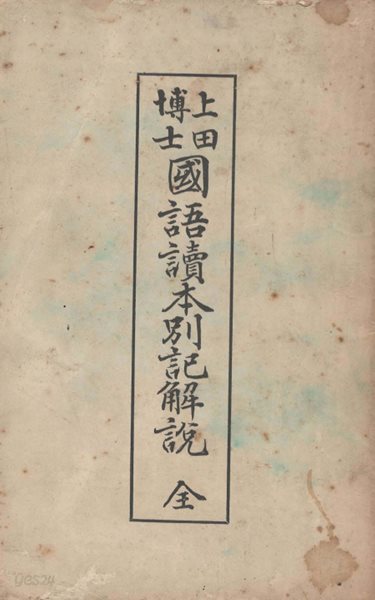 上田
博士
國語讀本別記解說
全
DCS24